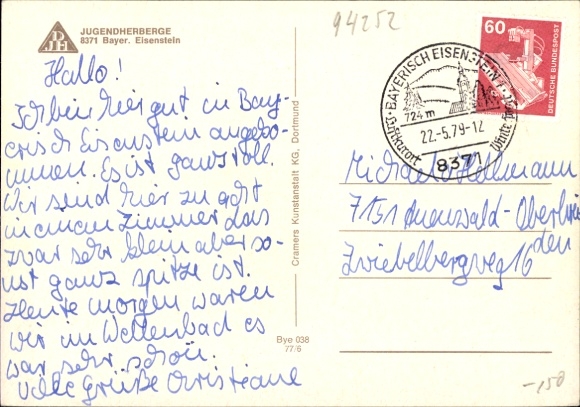 94252
JUGENDHERBERGE
8371 Bayer. Eisenstein
DJH
Hallo!
Ich bin hier gut in Bay-
erisch Eisenstein angeko-
mmen. Es ist ganz toll.
Wir sind hier zu acht
in einem Zimmer das
zwar sehr klein aber so-
nst ganz spitze ist.
Heute morgen waren
wir im Wellenbad es
war sehr schön.
Viele Grüße Christiane
Cramers Kunstanstalt KG, Dortmund
Bye 038
77/6
60
DEUTSCHE BUNDESPOST
BAYERISCH EISENSTEIN
724 m
22.-5.79-12
Luftkurort
8371
Michaela Hellmann
7151 Auenwald-Oberbrü
den
Zwiebelbergweg 16
-150